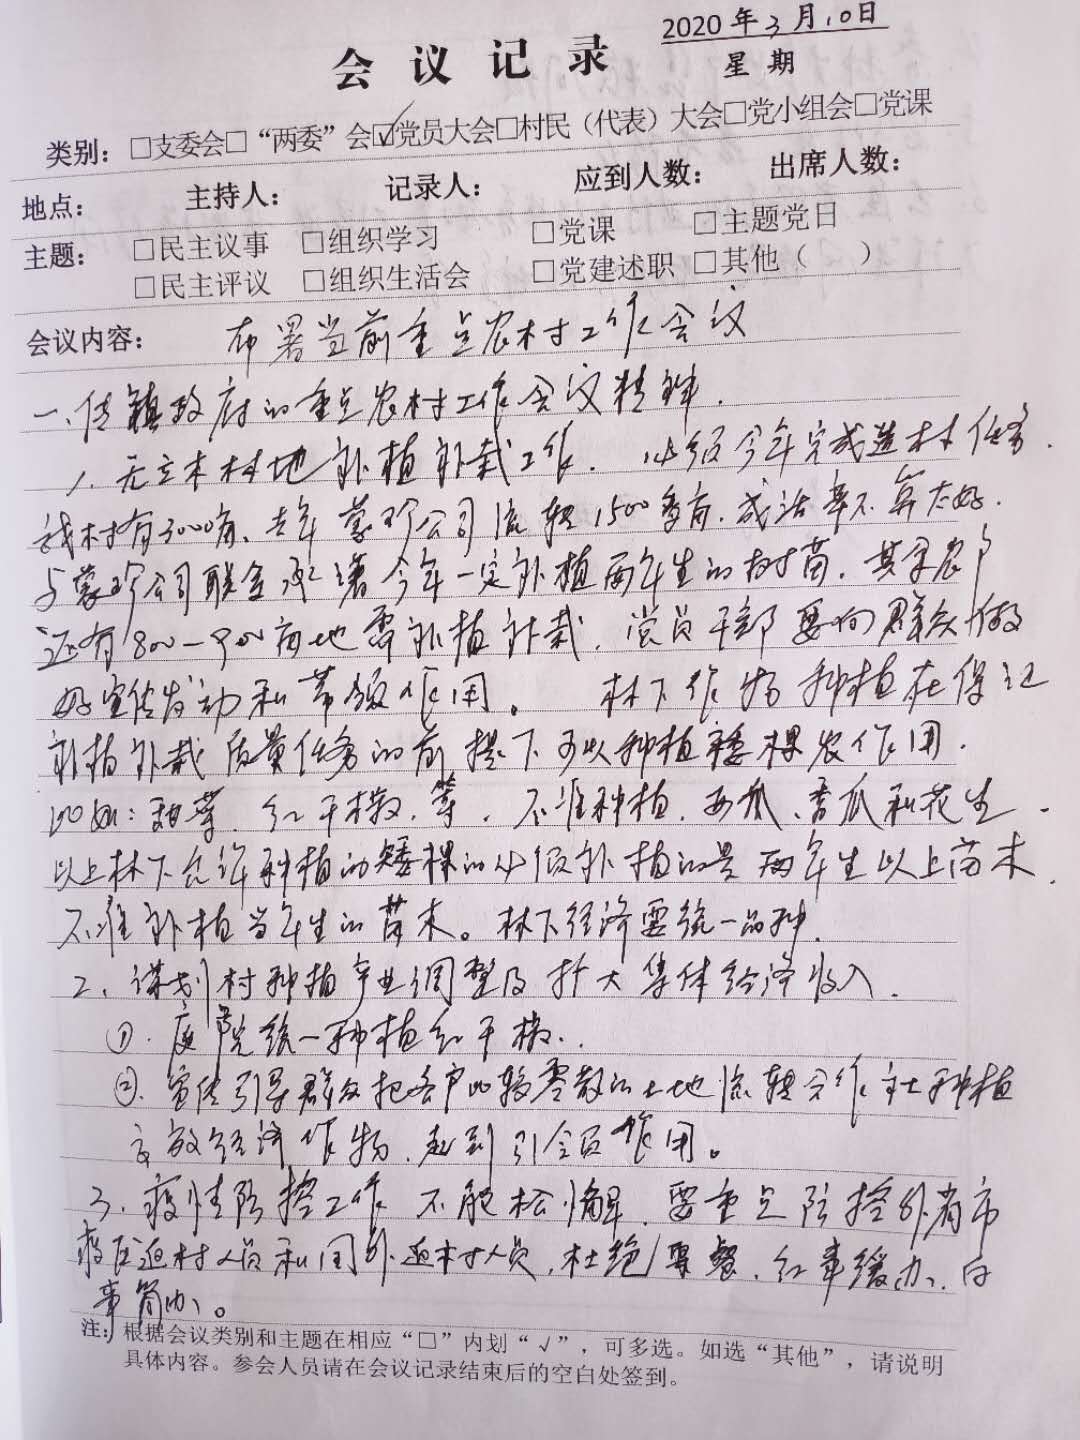 2020年3月10日
会议记录
星期
类别：□支委会□“两委”会☑党员大会□村民（代表）大会□党小组会□党课
地点： 主持人： 记录人： 应到人数： 出席人数：
主题： □民主议事 □组织学习 □党课 □主题党日
□民主评议 □组织生活会 □党建述职 □其他（ ）
会议内容： 布署当前重点农村工作会议
一、传镇政府的重点农村工作会议精神.
1. 无立木林地补植补栽工作. 必须今年完成造林任务.
我村有3000亩、去年蒙珍公司流转1500多亩. 成活率不算太好.
与蒙珍公司联合 今年一定补植两年生的树苗. 其余农户
还有800-900亩地需补植补栽. 党员干部要向群众做
好宣传发动和带领作用。 林下作物种植在保证
补植补栽质量任务的前提下可以种植矮棵农作用.
比如：甜菜. 红干椒. 等. 不准种植. 西瓜、香瓜和花生.
以上林下允许种植的矮棵的必须补植的是两年生以上苗木.
不准补植当年生的苗木。林下经济要统一品种.
2、谋划村种植产业调整及扩大集体经济收入.
①. 庭院统一种植红干椒..
②. 宣传引导群众把各户比较零散的土地流转合作社种植
高效经济作物. 起到引领作用。
3. 疫情防控工作 不能松懈. 要重点防控外省市
疫区返村人员和国外返村人员. 杜绝聚餐. 红事缓办、白
事简办。
注：根据会议类别和主题在相应“□”内划“√”，可多选。如选“其他”，请说明
具体内容。参会人员请在会议记录结束后的空白处签到。